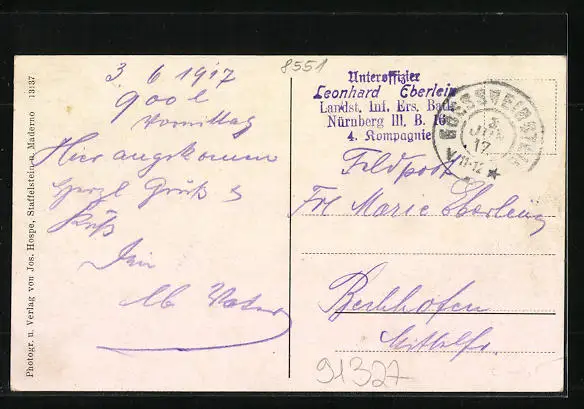 8551
3 6 1917
900
Vormittag
Hier angekommen
Herzl Gruß &
Kuß
Vater
Unteroffizier
Leonhard Eberlein
Landst. Inf. Ers. Batl.
Nürnberg III. B. 16
4. Kompagnie
GOESSWEINSTEIN
3
JUN
17
V 11-12
Feldpost
Fr Marie Eberlein
Bechhofen
Mittelfr.
91327
Photogr. u. Verlag von Jos. Hospe, Staffelstein u. Maderno 13137